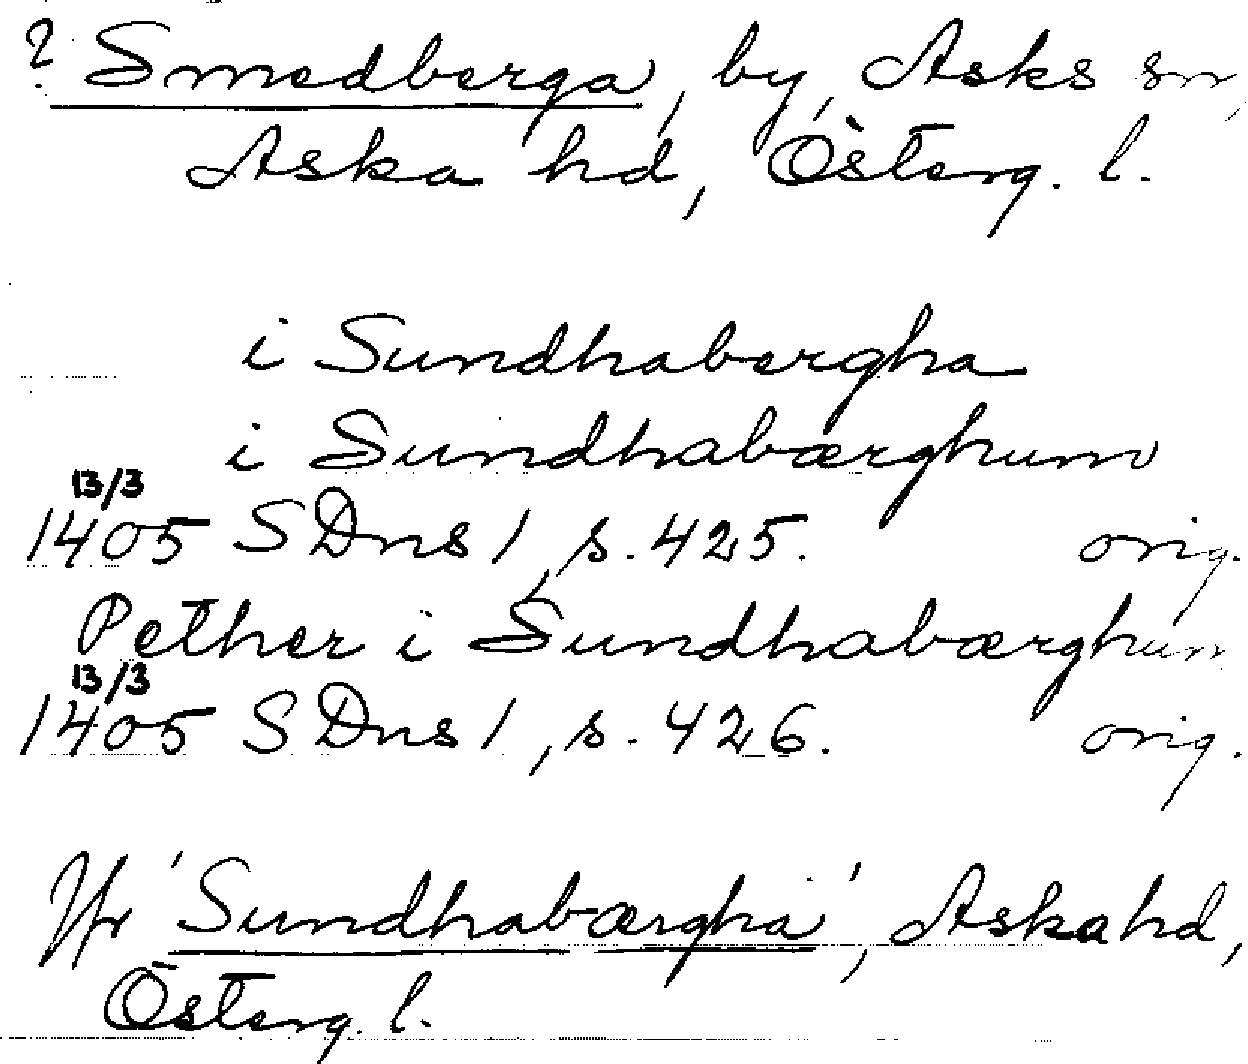 ? Smedberga, by, Asks sn,
Aska hd, Österg. l.
i Sundhabergha
i Sundhabærghum
13/3
1405 SDns 1, s. 425. orig.
Pether i Sundhabærghum
13/3
1405 SDns 1, s. 426. orig.
Jfr 'Sundhabærgha', Aska hd,
Österg. l.